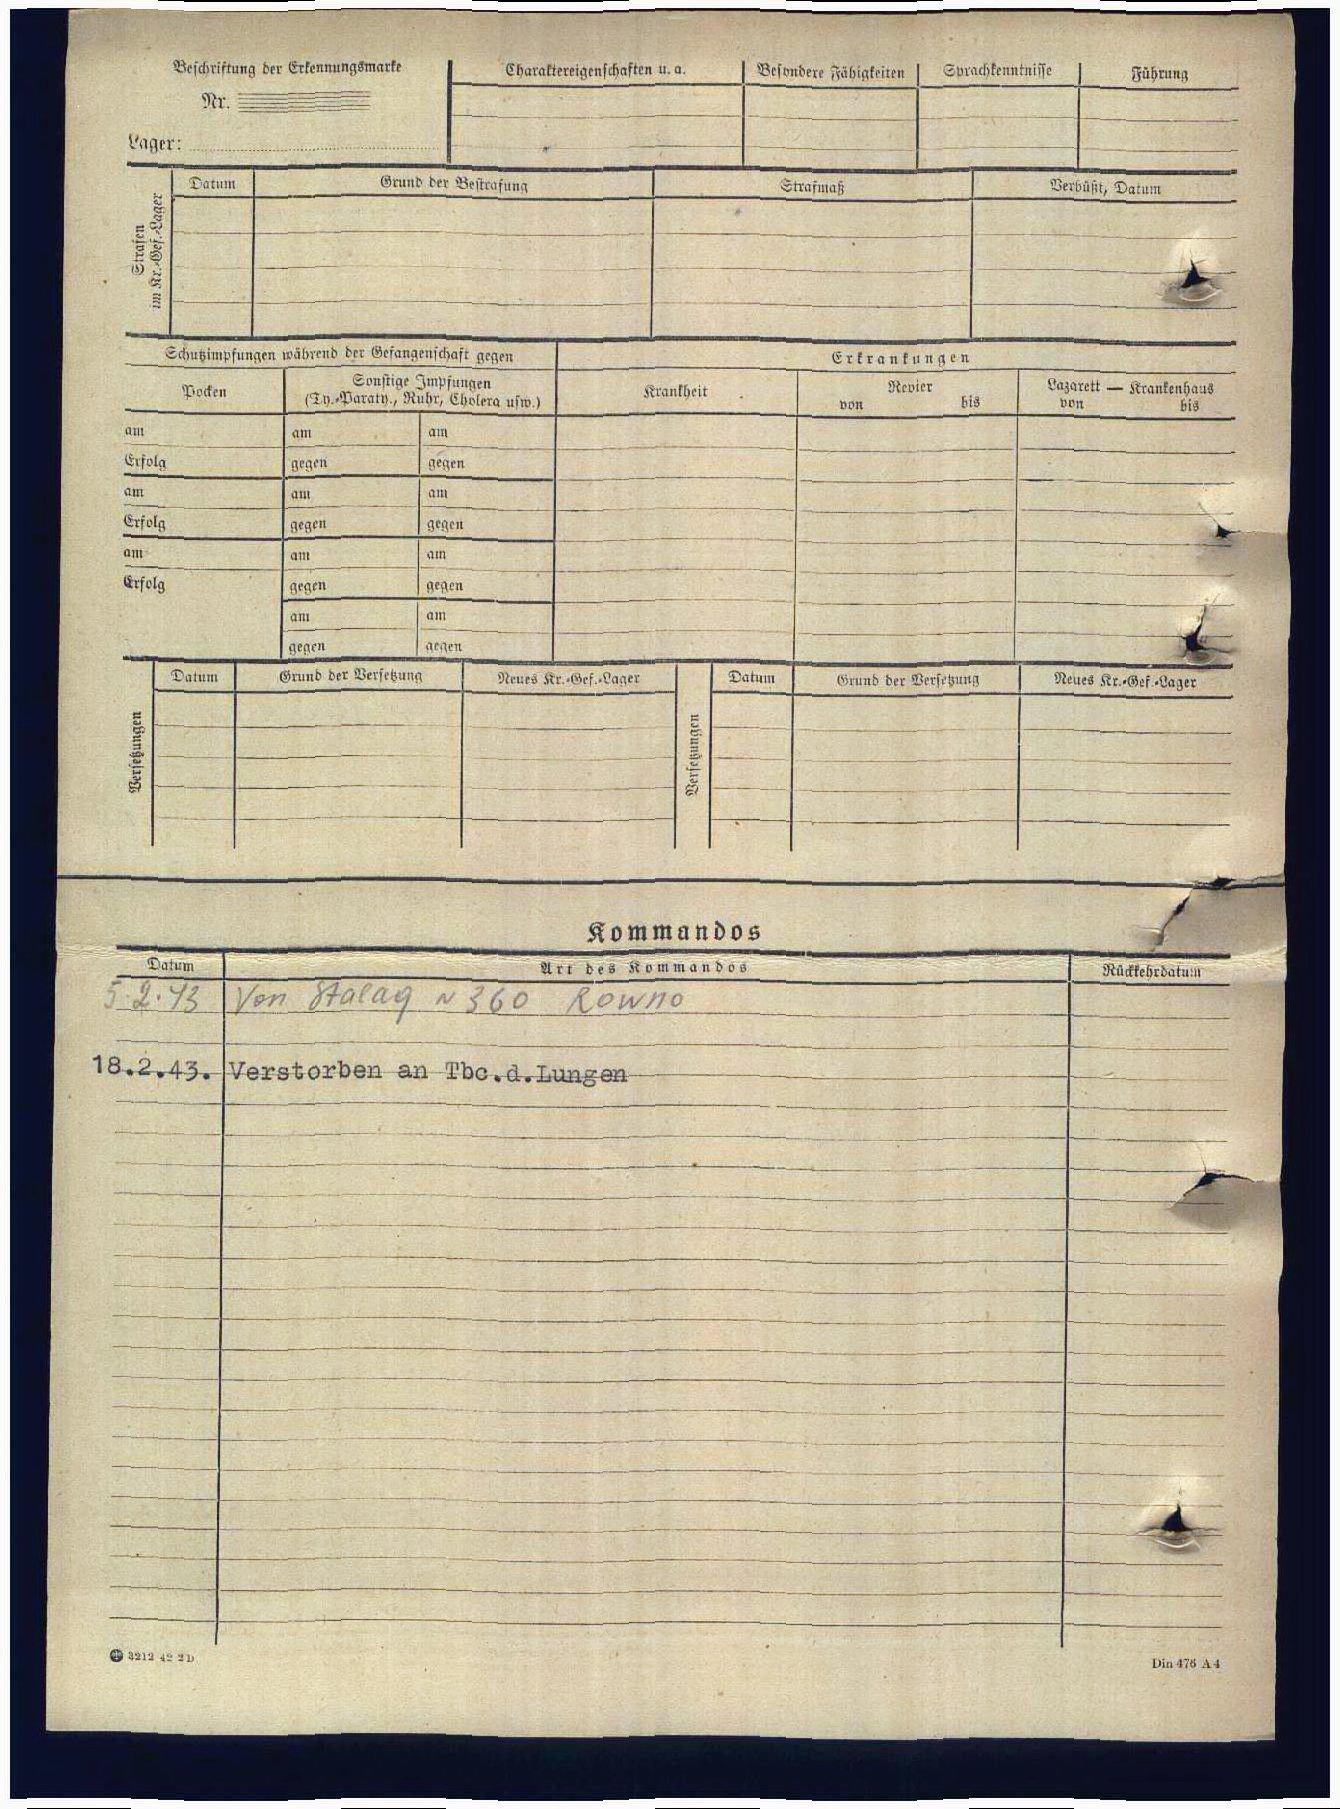 Beschriftung der Erkennungsmarke
Nr.
Lager:
Charaktereigenschaften u. a.
Besondere Fähigkeiten
Sprachkenntnisse
Führung
Strafen
im Kr.-Gef.-Lager
Datum
Grund der Bestrafung
Strafmaß
Verbüßt, Datum
Schutzimpfungen während der Gefangenschaft gegen
Erkrankungen
Pocken
Sonstige Impfungen
(Ty.-Paraty., Ruhr, Cholera usw.)
Krankheit
Revier
von bis
Lazarett — Krankenhaus
von bis
am am am
Erfolg gegen gegen
am am am
Erfolg gegen gegen
am am am
Erfolg gegen gegen
am am
gegen gegen
Versetzungen
Datum Grund der Versetzung Neues Kr.-Gef.-Lager
Versetzungen
Datum Grund der Versetzung Neues Kr.-Gef.-Lager
Kommandos
Datum Art des Kommandos Rückkehrdatum
5.2.43 Von Stalag N 360 Rowno
18.2.43. Verstorben an Tbc.d.Lungen
3212 42 2D
Din 476 A4